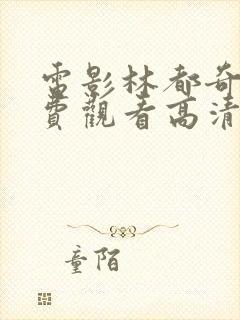 電影林都奇
費觀看高清
童陌